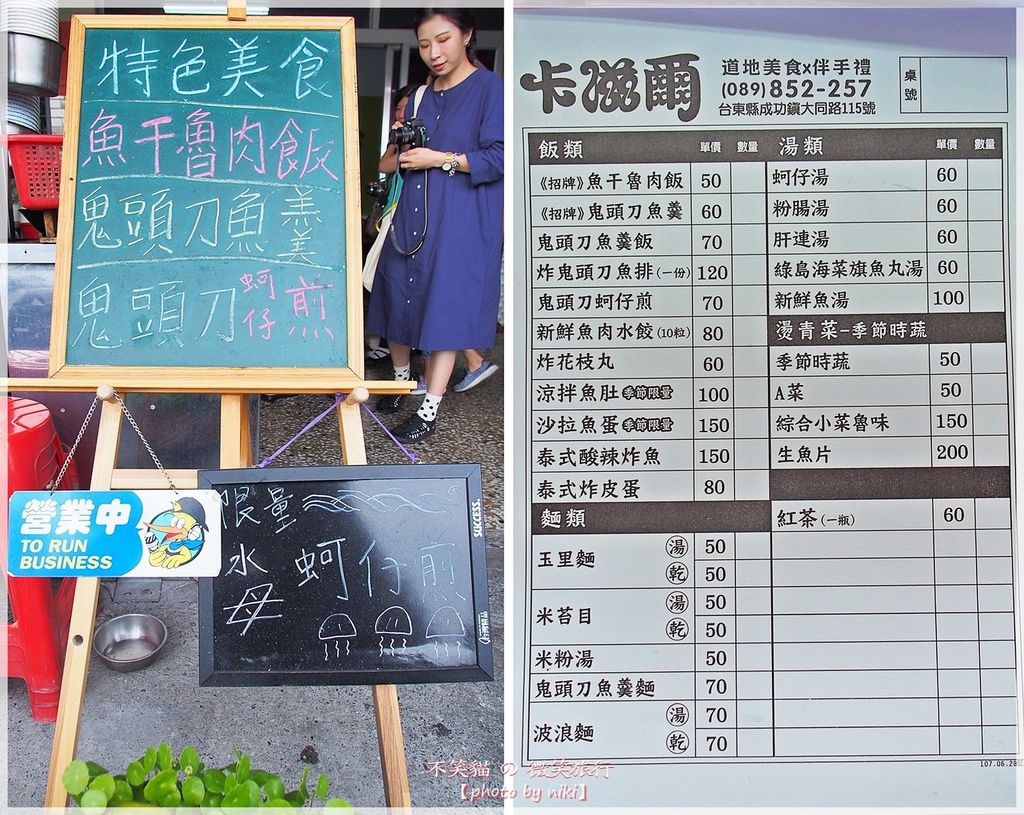 特色美食
魚干魯肉飯
鬼頭刀魚羹
鬼頭刀蚵仔煎
營業中
TO RUN
BUSINESS
限量
水母蚵仔煎
SUCCESS
卡滋爾
道地美食x伴手禮
(089)852-257
台東縣成功鎮大同路115號
桌號
飯類 單價 數量
《招牌》魚干魯肉飯 50
《招牌》鬼頭刀魚羹 60
鬼頭刀魚羹飯 70
炸鬼頭刀魚排(一份) 120
鬼頭刀蚵仔煎 70
新鮮魚肉水餃(10粒) 80
炸花枝丸 60
涼拌魚肚 季節限量 100
沙拉魚蛋 季節限量 150
泰式酸辣炸魚 150
泰式炸皮蛋 80
麵類
玉里麵 湯 50
乾 50
米苔目 湯 50
乾 50
米粉湯 50
鬼頭刀魚羹麵 70
波浪麵 湯 70
乾 70
湯類 單價 數量
蚵仔湯 60
粉腸湯 60
肝連湯 60
綠島海菜旗魚丸湯 60
新鮮魚湯 100
燙青菜-季節時蔬
季節時蔬 50
A菜 50
綜合小菜魯味 150
生魚片 200
紅茶(一瓶) 60
107.06.28
不笑貓 の 微笑旅行
【photo by niki】